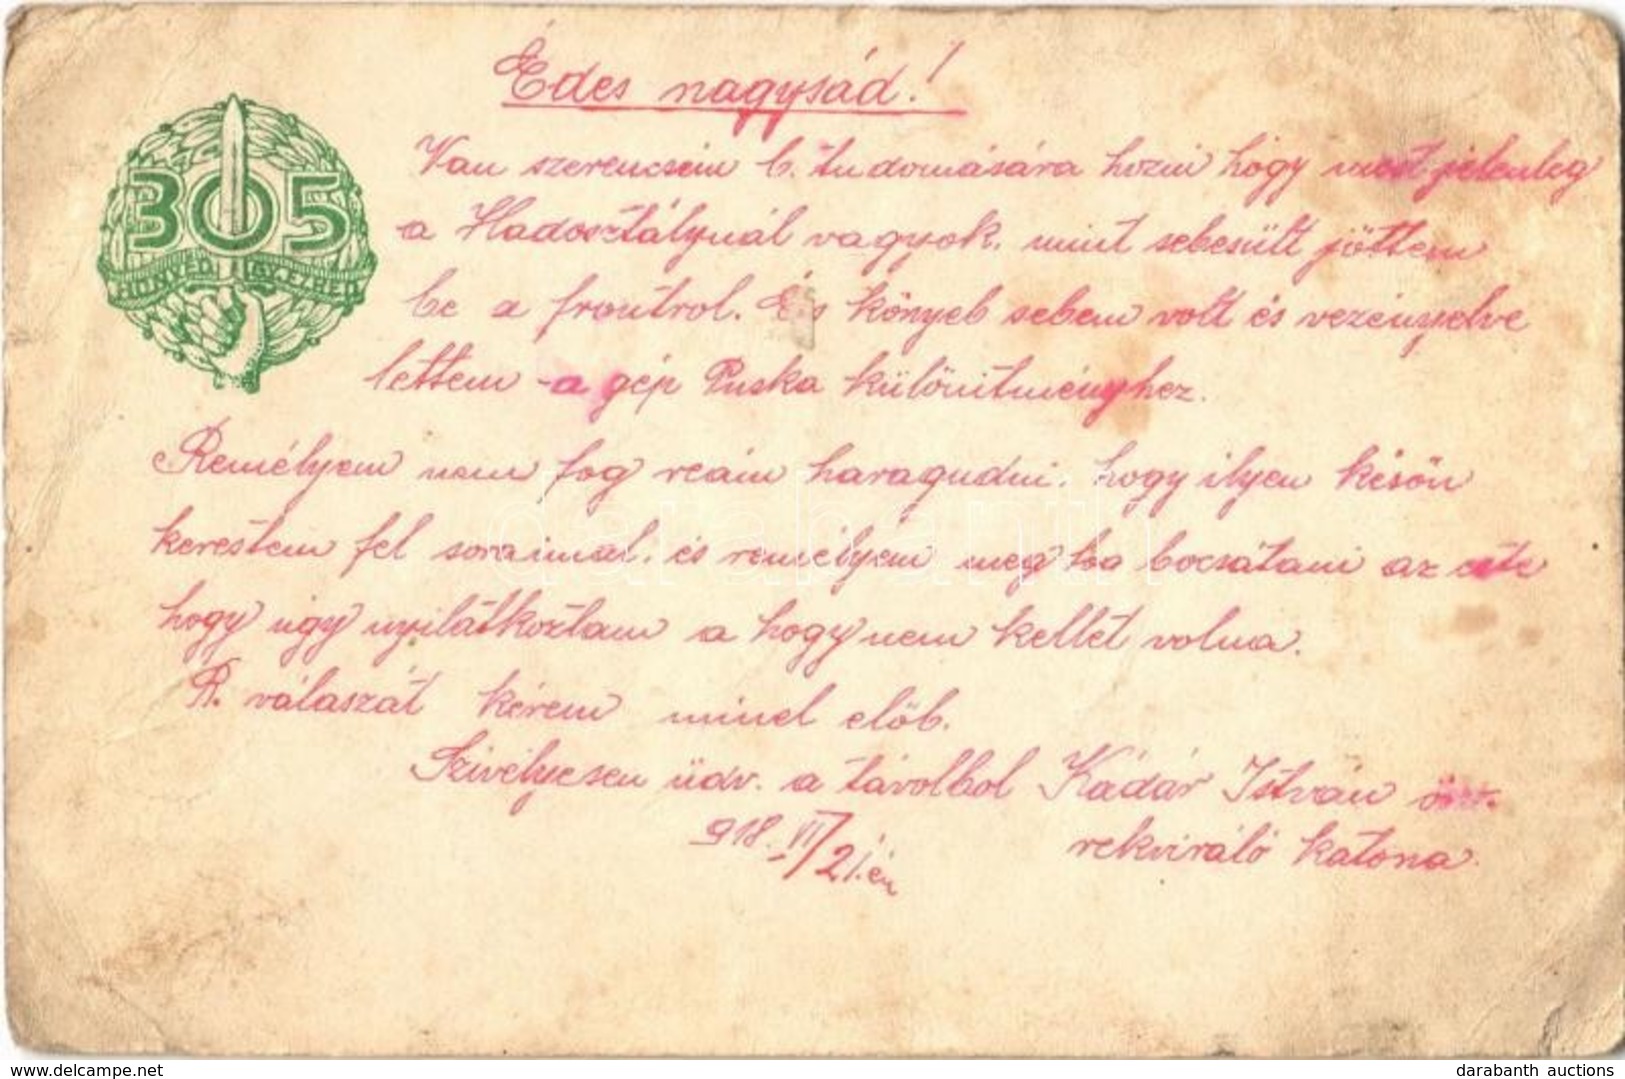 Édes nagysád!
305
HONVÉD GY. EZRED
Van szerencsém b. tudomására hozni hogy most jelenleg
a Hadosztálynál vagyok, mint sebesült jöttem
be a frontrol. És könyeb sebem volt és vezényelve
lettem a gép Puska különitményhez.
Remélyem nem fog reám haragudni, hogy ilyen késön
kerestem fel soraimal, és remélyem meg fog bocsátani az
hogy ugy nyilátkoztam a hogy nem kellet volna.
R. válaszát kérem minel elöb.
Szivélyesen üdv. a távolbol Kádár István
918. VI/21.én
rekviráló katona.
darabanth
delcampe.net
darabanth auctions